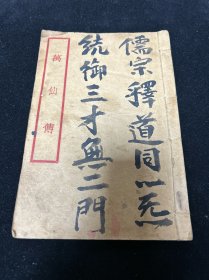 儒宗釋道同一炁
統御三才無二門
萬仙傳